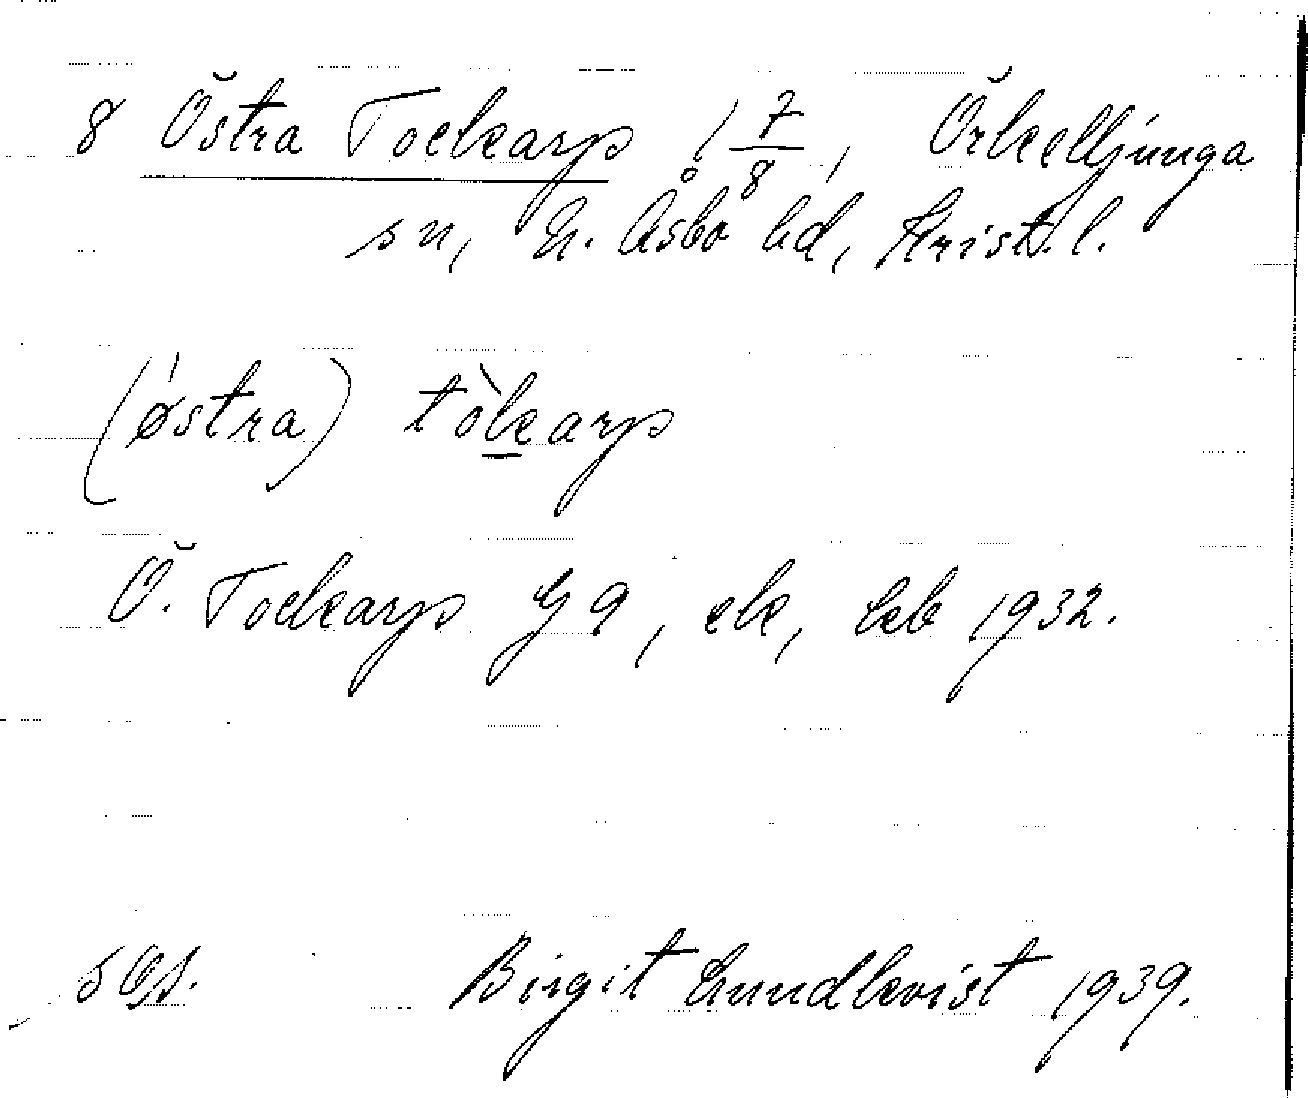 8 Östra Tockarp 1 7/8, Örkelljunga
sn, N. Åsbo hd, Krist. l.
(østra) tòkarp
Ö. Tockarp G 9, ek, kb 1932.
Birgit Lundkvist 1939.